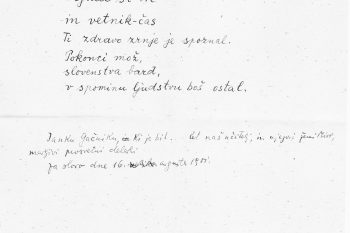 in vetnik-čas
Ti zdravo zrnje je spoznal.
Pokonci mož,
slovenstva bard,
v spominu ljudstvu boš ostal.
Janku Gačniku, ki je bil let naš učitelj, in njegovi ženi
marljivi
za slovo dne 16. avgusta